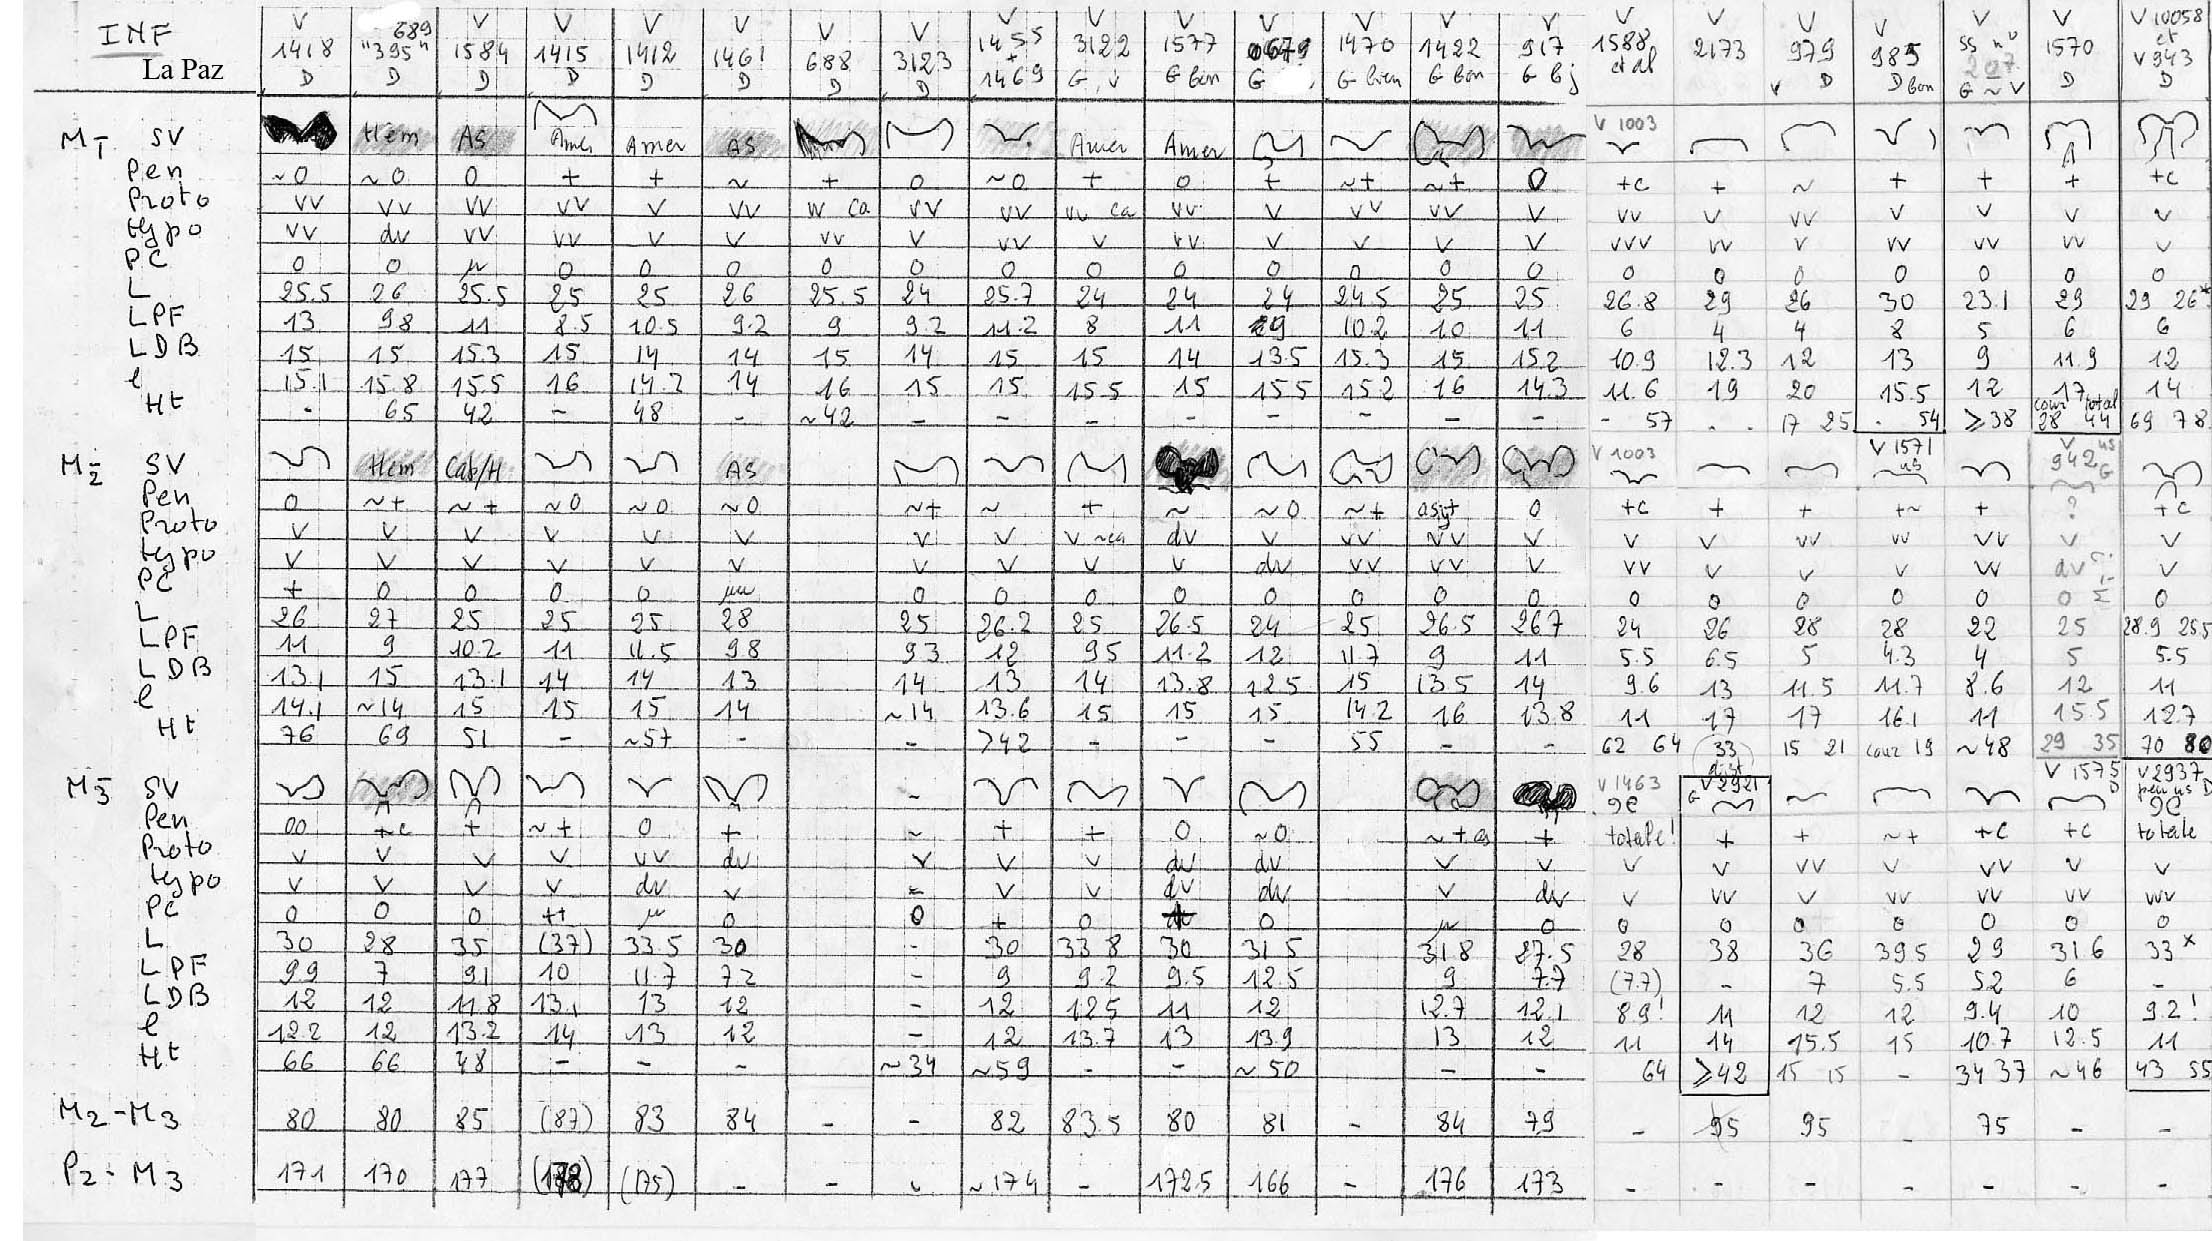 INF La Paz
V 1418 D | 689 "395" D | V 1584 D | V 1415 D | V 1412 D | V 1461 D | V 688 D | V 3123 D | V 1455 + 1469 | V 3122 G, v | V 1577 G bon | V 0679 G | V 1470 G bien | V 1422 G bon | V 917 G bj | V 1588 et al | V 2173 | V 979 v D | V 985 D bon | V ss n° 207 G ~ V | V 1570 D | V 10058 et V 943 D
M1 SV | Hem | As | Amer | Amer | AS | Amer | Amer | V 1003
Pen ~0 | ~0 | 0 | + | + | ~ | + | 0 | ~0 | + | 0 | + | ~+ | ~+ | 0 | +c | + | ~ | + | + | + | +c
Proto vv | vv | vv | vv | v | vv | w ca | vv | vv | vv ca | vv | v | vv | vv | v | vv | v | vv | v | v | v | v
Hypo vv | dv | vv | vv | v | v | vv | v | vv | v | vv | v | v | v | v | vvv | vv | v | vv | vv | vv | v
PC 0 | 0 | µ | 0 | 0 | 0 | 0 | 0 | 0 | 0 | 0 | 0 | 0 | 0 | 0 | 0 | 0 | 0 | 0 | 0 | 0 | 0
L 25.5 | 26 | 25.5 | 25 | 25 | 26 | 25.5 | 24 | 25.7 | 24 | 24 | 24 | 24.5 | 25 | 25 | 26.8 | 29 | 26 | 30 | 23.1 | 29 | 29 26*
LPF 13 | 98 | 11 | 8.5 | 10.5 | 9.2 | 9 | 9.2 | 11.2 | 8 | 11 | 9 | 10.2 | 10 | 11 | 6 | 4 | 4 | 8 | 5 | 6 | 6
LDB 15 | 15 | 15.3 | 15 | 14 | 14 | 15 | 14 | 15 | 15 | 14 | 13.5 | 15.3 | 15 | 15.2 | 10.9 | 12.3 | 12 | 13 | 9 | 11.9 | 12
l 15.1 | 15.8 | 15.5 | 16 | 14.2 | 14 | 16 | 15 | 15 | 15.5 | 15 | 15.5 | 15.2 | 16 | 14.3 | 11.6 | 19 | 20 | 15.5 | 12 | 17 | 14
Ht - | 65 | 42 | ~ | 48 | - | ~42 | - | - | - | - | - | - | - | - | - 57 | - - | 17 25 | - 54 | ≥38 | cour 28 total 44 | 69 78
M2 SV | Hem | Cab/H | AS | V 1003 | V 1571 us | V 942 us G
Pen 0 | ~+ | ~+ | ~0 | ~0 | ~0 | | ~+ | ~ | + | ~ | ~0 | ~+ | asy+ | 0 | +c | + | + | +~ | + | ? | +c
Proto v | v | v | v | v | v | | v | v | v ~ca | dv | v | vv | vv | v | v | v | vv | vv | vv | v | v
Hypo v | v | v | v | v | v | | v | v | v | v | dv | vv | vv | v | vv | v | v | v | vv | dv | v
PC + | 0 | 0 | 0 | 0 | µµ | | 0 | 0 | 0 | 0 | 0 | 0 | 0 | 0 | 0 | 0 | 0 | 0 | 0 | 0 | 0
L 26 | 27 | 25 | 25 | 25 | 28 | | 25 | 26.2 | 25 | 26.5 | 24 | 25 | 26.5 | 267 | 24 | 26 | 28 | 28 | 22 | 25 | 28.9 25.5
LPF 11 | 9 | 10.2 | 11 | 11.5 | 98 | | 93 | 12 | 95 | 11.2 | 12 | 11.7 | 9 | 11 | 5.5 | 6.5 | 5 | 4.3 | 4 | 5 | 5.5
LDB 13.1 | 15 | 13.1 | 14 | 14 | 13 | | 14 | 13 | 14 | 13.8 | 12.5 | 15 | 13.5 | 14 | 9.6 | 13 | 11.5 | 11.7 | 8.6 | 12 | 11
l 14.1 | ~14 | 15 | 15 | 15 | 14 | | ~14 | 13.6 | 15 | 15 | 15 | 14.2 | 16 | 13.8 | 11 | 17 | 17 | 16.1 | 11 | 15.5 | 12.7
Ht 76 | 69 | 51 | - | ~57 | - | | - | >42 | - | - | - | 55 | - | - | 62 64 | 33 dist | 15 21 | cour 19 | ~48 | 29 35 | 70 80
M3 SV | - | V 1463 | G V 2921 | V 1575 D | V 2937 peu us D
Pen 00 | +c | + | ~+ | 0 | + | | ~ | + | + | 0 | ~0 | | ~+as | + | totale! | + | + | ~+ | +c | +c | totale
Proto v | v | v | v | vv | dv | | v | v | v | dv | dv | | v | v | v | v | vv | v | vv | v | v
Hypo v | v | v | v | dv | v | | = | v | v | dv | dv | | v | dv | v | vv | v | vv | vv | vv | vvv
PC 0 | 0 | 0 | ++ | µ | 0 | | 0 | + | 0 | | 0 | | µ | 0 | 0 | 0 | 0 | 0 | 0 | 0 | 0
L 30 | 28 | 35 | (37) | 33.5 | 30 | | - | 30 | 33 8 | 30 | 31 5 | | 31.8 | 27.5 | 28 | 38 | 36 | 39.5 | 29 | 31 6 | 33*
LPF 99 | 7 | 91 | 10 | 11.7 | 72 | | - | 9 | 9.2 | 9.5 | 12.5 | | 9 | 7.7 | (7.7) | - | 7 | 5.5 | 52 | 6 | -
LDB 12 | 12 | 11.8 | 13.1 | 13 | 12 | | - | 12 | 125 | 11 | 12 | | 12.7 | 12.1 | 89! | 11 | 12 | 12 | 9.4 | 10 | 9.2!
l 12.2 | 12 | 13.2 | 14 | 13 | 12 | | - | 12 | 13.7 | 13 | 13.9 | | 13 | 12 | 11 | 14 | 15.5 | 15 | 10.7 | 12.5 | 11
Ht 66 | 66 | 48 | - | - | - | | ~34 | ~59 | - | - | ~50 | | - | - | 64 | ≥42 | 15 15 | - | 34 37 | ~46 | 43 55
M2-M3 80 | 80 | 85 | (87) | 83 | 84 | - | - | 82 | 83.5 | 80 | 81 | - | 84 | 79 | - | 95 | 95 | - | 75 | - | -
P2-M3 171 | 170 | 177 | (178) | (175) | - | - | - | ~174 | - | 172.5 | 166 | - | 176 | 173 | - | - | - | - | - | - | -